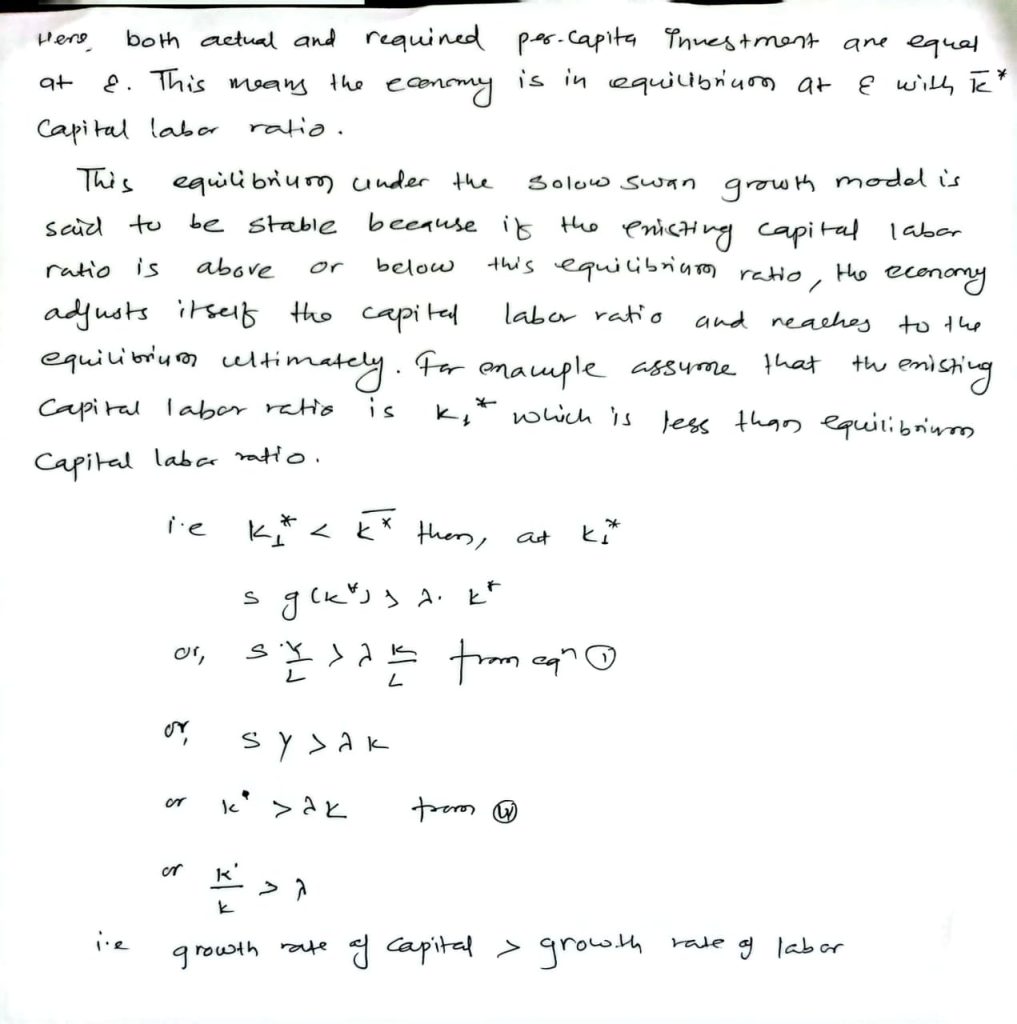 Here, both actual and required per-capita Investment are equal
at E. This means the economy is in equilibrium at E with k̄*
Capital labor ratio.
This equilibrium under the Solow Swan growth model is
said to be stable because if the existing capital labor
ratio is above or below this equilibrium ratio, the economy
adjusts itself the capital labor ratio and reaches to the
equilibrium ultimately. For example assume that the existing
Capital labor ratio is k₁* which is less than equilibrium
Capital labor ratio.
i.e k₁* < k̄* then, at k₁*
s g(k*) > λ. k*
or, s.Y/L > λ K/L from eqⁿ ①
or, s Y > λ K
or K• > λ K from ⓘⓥ
or K•/K > λ
i.e growth rate of capital > growth rate of labor